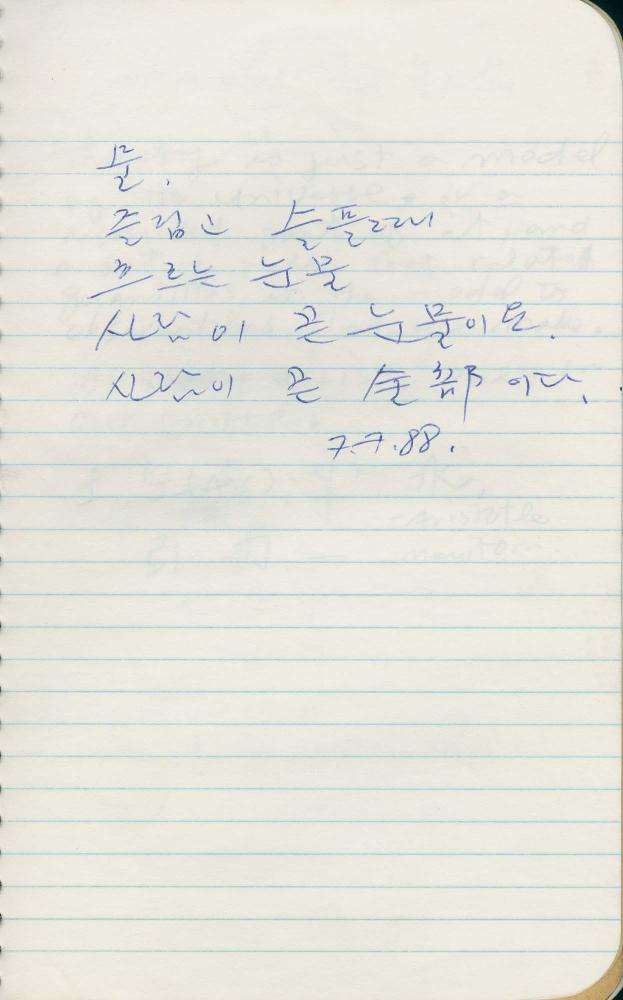 물.
즐겁고 슬플때
흐르는 눈물
사람이 곧 눈물이요.
사람이 곧 全部이다.
7.7.88.